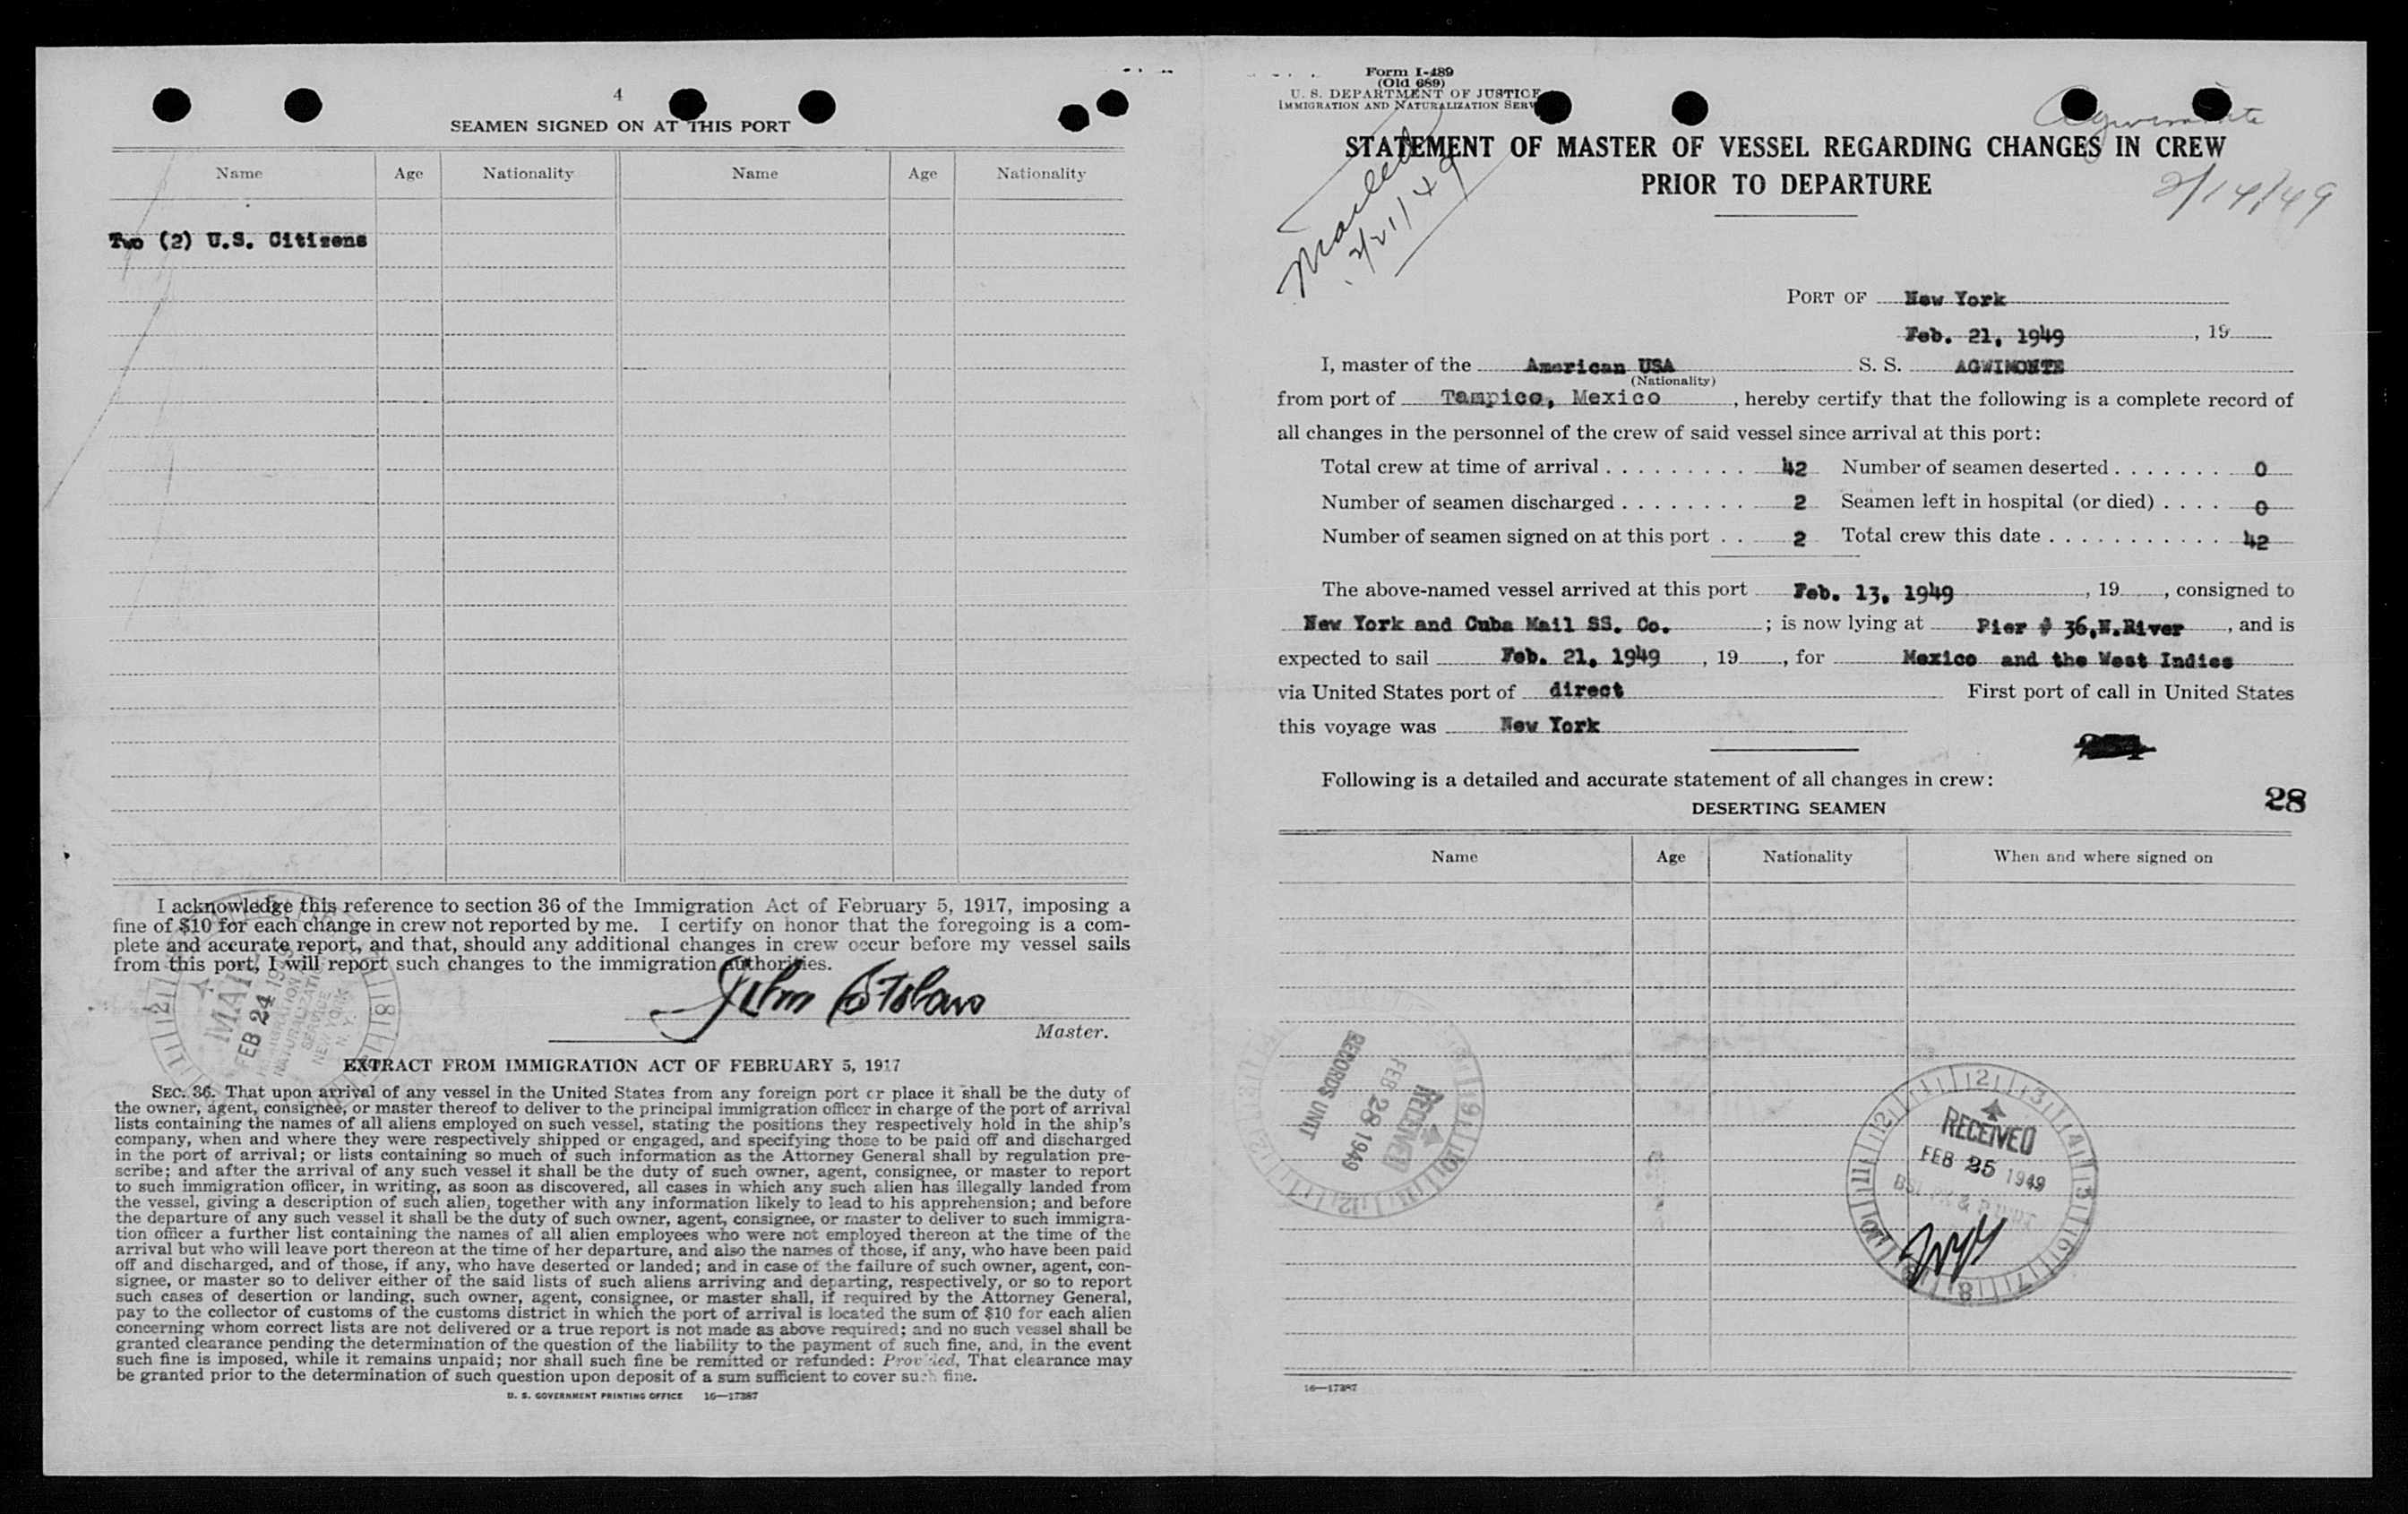 4
SEAMEN SIGNED ON AT THIS PORT
Name Age Nationality Name Age Nationality
Two (2) U.S. Citizens
I acknowledge this reference to section 36 of the Immigration Act of February 5, 1917, imposing a
fine of $10 for each change in crew not reported by me. I certify on honor that the foregoing is a com-
plete and accurate report, and that, should any additional changes in crew occur before my vessel sails
from this port, I will report such changes to the immigration authorities.
MAIL
FEB 24 1949
IMMIGRATION AND
NATURALIZATION
SERVICE
NEW YORK
N. Y.
John
Master.
EXTRACT FROM IMMIGRATION ACT OF FEBRUARY 5, 1917
SEC. 36. That upon arrival of any vessel in the United States from any foreign port or place it shall be the duty of
the owner, agent, consignee, or master thereof to deliver to the principal immigration officer in charge of the port of arrival
lists containing the names of all aliens employed on such vessel, stating the positions they respectively hold in the ship's
company, when and where they were respectively shipped or engaged, and specifying those to be paid off and discharged
in the port of arrival; or lists containing so much of such information as the Attorney General shall by regulation pre-
scribe; and after the arrival of any such vessel it shall be the duty of such owner, agent, consignee, or master to report
to such immigration officer, in writing, as soon as discovered, all cases in which any such alien has illegally landed from
the vessel, giving a description of such alien, together with any information likely to lead to his apprehension; and before
the departure of any such vessel it shall be the duty of such owner, agent, consignee, or master to deliver to such immigra-
tion officer a further list containing the names of all alien employees who were not employed thereon at the time of the
arrival but who will leave port thereon at the time of her departure, and also the names of those, if any, who have been paid
off and discharged, and of those, if any, who have deserted or landed; and in case of the failure of such owner, agent, con-
signee, or master so to deliver either of the said lists of such aliens arriving and departing, respectively, or so to report
such cases of desertion or landing, such owner, agent, consignee, or master shall, if required by the Attorney General,
pay to the collector of customs of the customs district in which the port of arrival is located the sum of $10 for each alien
concerning whom correct lists are not delivered or a true report is not made as above required; and no such vessel shall be
granted clearance pending the determination of the question of the liability to the payment of such fine, and, in the event
such fine is imposed, while it remains unpaid; nor shall such fine be remitted or refunded: Provided, That clearance may
be granted prior to the determination of such question upon deposit of a sum sufficient to cover such fine.
U. S. GOVERNMENT PRINTING OFFICE 16—17387
Form I-489
(Old 689)
U. S. DEPARTMENT OF JUSTICE
IMMIGRATION AND NATURALIZATION SERV
Agwimonte
2/14/49
Mailed
2/21/49
STATEMENT OF MASTER OF VESSEL REGARDING CHANGES IN CREW
PRIOR TO DEPARTURE
PORT OF New York
Feb. 21, 1949, 19
I, master of the American USA S. S. AGWIMONTE
(Nationality)
from port of Tampico, Mexico, hereby certify that the following is a complete record of
all changes in the personnel of the crew of said vessel since arrival at this port:
Total crew at time of arrival . . . . . . . . . 42 Number of seamen deserted . . . . . . . 0
Number of seamen discharged . . . . . . . . 2 Seamen left in hospital (or died) . . . . 0
Number of seamen signed on at this port . . 2 Total crew this date . . . . . . . . . . . . 42
The above-named vessel arrived at this port Feb. 13, 1949, 19, consigned to
New York and Cuba Mail SS. Co. ; is now lying at Pier # 36, N. River, and is
expected to sail Feb. 21, 1949, 19, for Mexico and the West Indies
via United States port of direct First port of call in United States
this voyage was New York
Following is a detailed and accurate statement of all changes in crew:
28
DESERTING SEAMEN
Name Age Nationality When and where signed on
RECEIVED
FEB 28 1949
RECORDS UNIT
RECEIVED
FEB 25 1949
16—17387